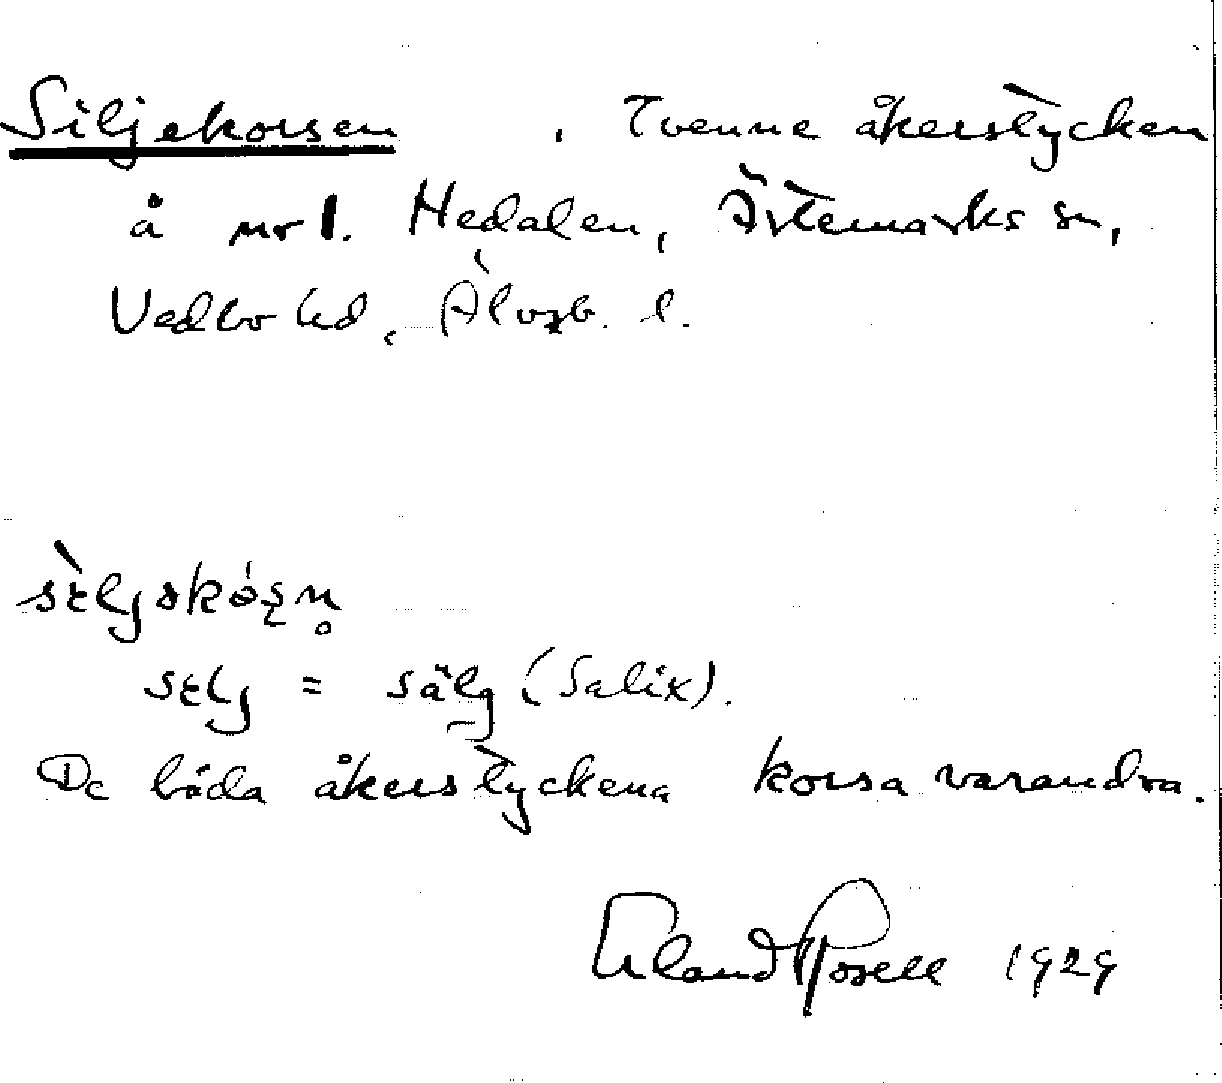 Siljekorsen . Tvenne åkerstycken
å nr 1. Hedalen, Ärtemarks sn,
Vedbo hd, Älvsb. l.
sɛ̀ljəkɔ́ṣṇ
sɛlj = sälg (Salix).
De båda åkerstyckena korsa varandra.
Erland Rosell 1929